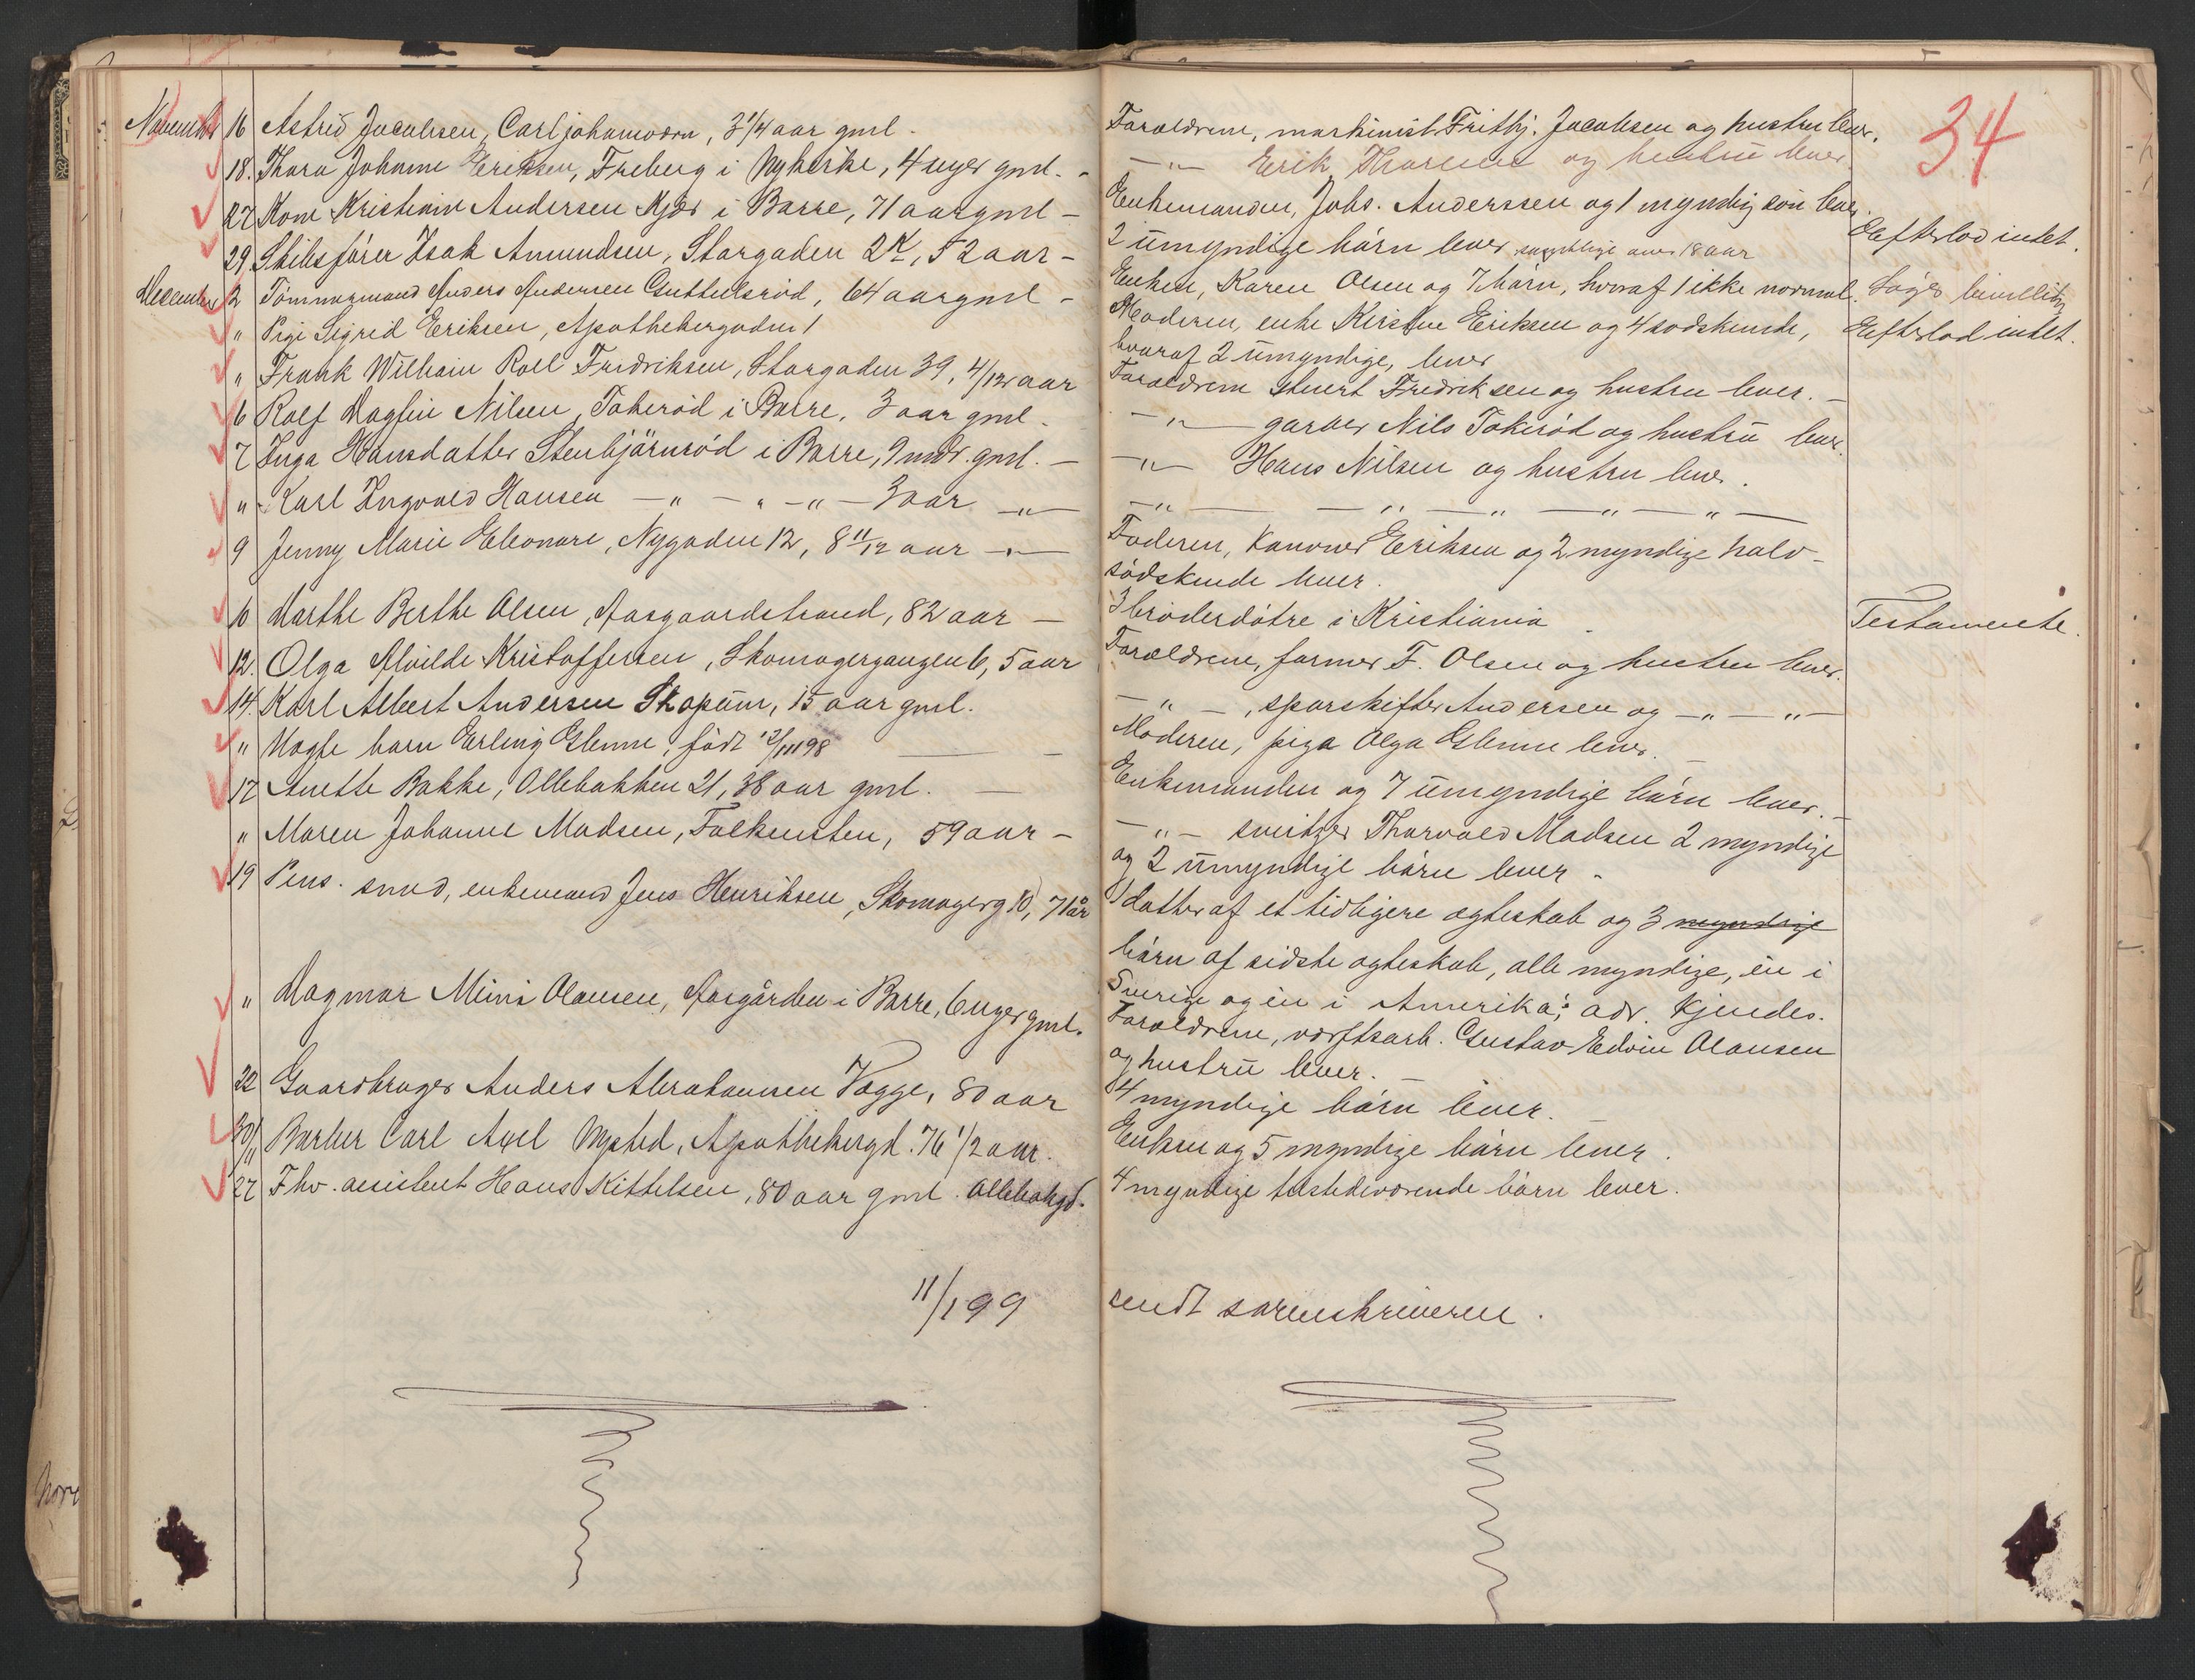 34
November 16 Astrid Jacobsen, Carljohansværn, 3 1/4 aar gml.
18. Thora Johanne Eriksen, Freberg i Nykirke, 4 uger gml. -
27 Kone Kristiane Andersen Kjær i Borre, 71 aar gml -
29 Skibsfører Isak Amundsen, Storgaden 2K, 52 aar -
December 2 Tømmermand Anders Andersen Guttulsrød, 64 aar gml -
" Pige Sigrid Eriksen, Apothekergaden 1
" Frank William Roll Fredriksen, Storgaden 39, 4/12 aar
6 Rolf Dagfin Nilsen, Tokerød i Borre, 3 aar gml.
7 Inga Hansdatter Stenbjörnrød i Borre, 9 mdr. gml. -
" Karl Ingvald Hansen - " - " - " - 3 aar - " -
9 Jenny Marie Eleonore, Nygaden 12, 8 11/12 aar - " -
10 Marthe Berthe Olsen, Aasgaardstrand, 82 aar -
12. Olga Alvilde Kristoffersen, Skomagergangen 6, 5 aar
14. Karl Albert Andersen Skopum, 15 aar gml.
" Uægte barn Erling Glenne, født 12/11 98
17 Anette Bakke, Ollebakken 21, 38 aar gml. -
" Maren Johanne Madsen, Falkensten, 59 aar -
19 Pens. smed, enkemand Jens Henriksen, Skomagerg 10, 71 år
" Dagmar Mimi Olausen, Aasgården i Borre, 6 uger gml.
22 Gaardbruger Anders Abrahamsen Vagge, 80 aar
30/11 Barber Carl Axel Nysted, Apothekergd. 76 1/2 aar.
27 Fhv. assistent Hans Kittelsen, 80 aar gml. Ollebakgd.
11/1 99
Forældrene, maskinist Frithj. Jacobsen og hustru lever.
- " - Erik Thorsen og hustru lever
Enkemanden, Johs. Anderssen og 1 myndig søn lever.
2 umyndige børn lever samtlige over 18 aar
Efterlod intet.
Enken, Karen Olsen og 7 børn, hvoraf 1 ikke normal.
Søger bevilling
Moderen, enke Kirstine Eriksen og 4 sødskende,
Efterlod intet.
hvoraf 2 umyndige, lever
Forældrene Stuert Fredriksen og hustru lever. -
- " - garver Nils Tokerød og hustru lever.
- " - Hans Nilsen og hustru lever.
- " - - " - " - " - " -
Faderen, Kanoner Eriksen og 2 myndige halv-
sødskende lever.
3 broderdøtre i Kristiania
Testamente.
Forældrene, former F. Olsen og hustru lever.
- " -, sporskifter Andersen og - " - " -
Moderen, pige Olga Glenne lever.
Enkemanden og 7 umyndige børn lever. -
- " - sveitzer Thorvald Madsen 2 myndige
og 2 umyndige børn lever.
1 datter af et tidligere ægteskab og 3 myndige
børn af sidste ægteskab, alle myndige, en i
Sverige og en i Amerika; adr. kjendes.
Forældrene, værftsarb. Gustav Edvin Olausen
og hustru lever. -
4 myndige børn lever.
Enken og 5 myndige børn lever.
4 myndige tilstedeværende børn lever.
sendt sorenskriveren.